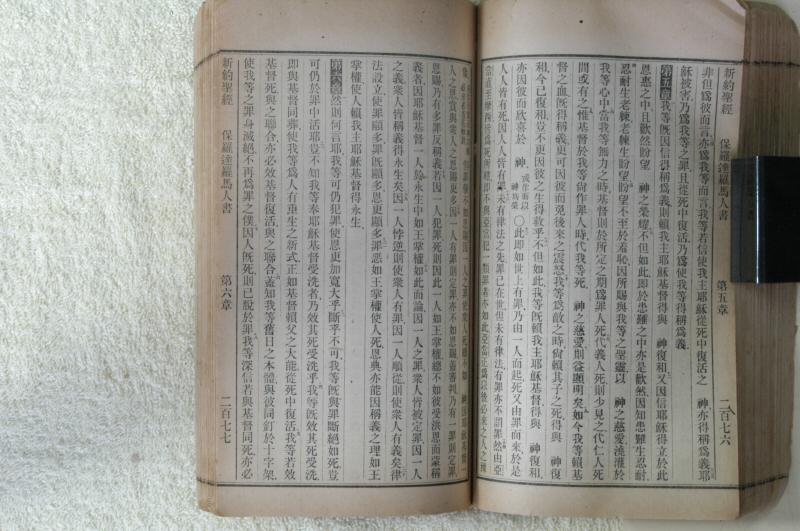 新約聖經 保羅達羅馬人書 第五章 二百七六
非但爲彼而言亦爲我等而言我等若信使我主耶穌從死中復活之 神亦得稱爲義耶
穌被害乃爲我等之罪且從死中復活乃爲使我等得稱爲義
第五章 我等旣因信得稱爲義則賴我主耶穌基督得與 神復和又因信耶穌得立於此
恩惠之中且歡然盼望 神之榮耀不但如此卽於患難之中亦是歡然因知患難生忍耐
忍耐生老練老練生盼望盼望不至於羞恥因所賜與我等之聖靈以 神之慈愛澆灌於
我等心中當我等無力之時基督則於所定之期爲罪人死代義人死則少見之代仁人死
間或有之惟基督於我等尙作罪人時代我等死 神之慈愛則益顯明矣如今我等賴基
督之血旣得稱義更可因彼而免後來之震怒我等爲敵之時尙賴其子之死得與 神復
和今已復和豈不更因彼之生得救乎不但如此我等旣賴我主耶穌基督得與 神復和
亦因彼而欣喜於 神 ○此卽如世上有罪乃由一人而起死又由罪而來於是
人人皆有死因人人皆有罪未有律法之先罪已在世但未有律法有罪亦不謂罪然由亞
新約聖經 保羅達羅馬人書 第六章 二百七七
恩賜乃有多罪反稱義若因一人犯罪死則因此一人如王掌權總不如彼受洪恩而蒙稱
義者因耶穌基督一人於永生中如王掌權如此而論因一人之罪衆人皆被定罪因一人
之義衆人皆稱義得永生矣因一人悖逆則使衆人有罪因一人順從則使衆人有義矣律
法設立使罪顯多罪旣顯多恩更顯多罪惡如王掌權使人死恩典亦能因稱義之理如王
掌權使人賴我主耶穌基督得永生
第六章 然則何言耶我等可仍犯罪使恩更加寬大乎斷乎不可我等旣與罪斷絕如死豈
可仍於罪中活耶豈不知我等奉耶穌基督受洗者乃效其死受洗乎我等旣效其死受洗
卽與基督同葬我等爲人有重生之新式正如基督賴父之大能從死中復活我等若效
基督死與之聯合亦必效基督復活與之聯合蓋知我等舊日之本體與彼同釘於十字架
使我等之罪身滅絕不再爲罪之僕因人旣死則已脫於罪我等深信若與基督同死亦必